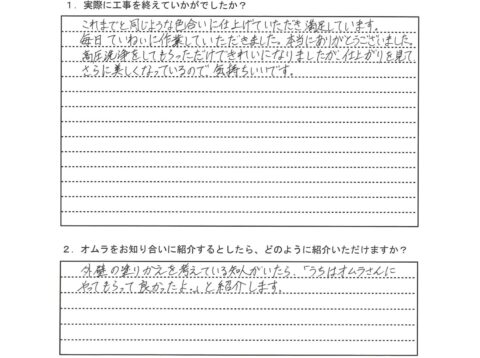 1．実際に工事を終えていかがでしたか？
これまでと同じような色合いに仕上げていただき満足しています。
毎日ていねいに作業していただきました。本当にありがとうございました。
高圧洗浄をしてもらっただけできれいになりましたが、仕上がりを見て
さらに美しくなっているので、気持ちいいです。
2．オムラをお知り合いに紹介するとしたら、どのように紹介いただけますか？
外壁の塗りかえを考えている知人がいたら、「うちはオムラさんに
やってもらって良かったよ。」と紹介します。